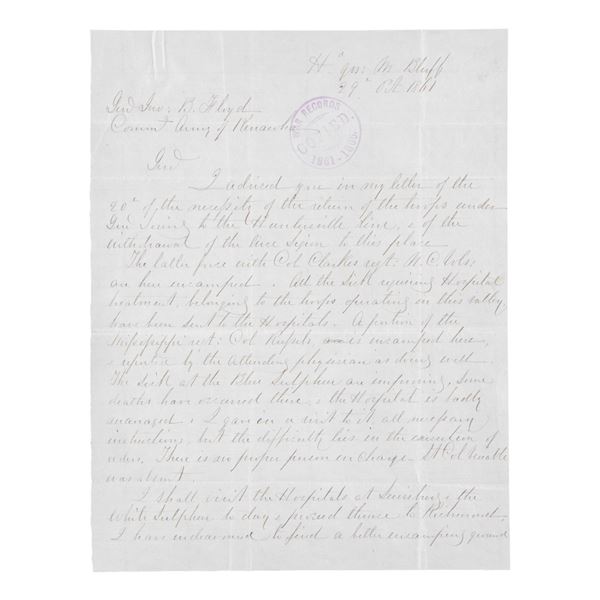 Hd qrs: M. Bluff
29th Oct 1861
Genl Jno: B. Floyd
Commg Army of Kanawha
WAR RECORDS
COPIED
1861-1865.
Genl
I advised you in my letter of the
20th of the necessity of the return of the troops under
Genl Loring to the Huntersville line, & of the
withdrawal of the Wise Legion to this place
The latter force with Col Clarkes regt: N. C. Vols:
are here encamped. All the sick requiring Hospital
treatment, belonging to the troops operating in this valley,
have been sent to the Hospitals. A portion of the
Mississippi regt: Col Russels, is encamped here,
& reported by the attending physician as doing well.
The sick at the Blue Sulphur are improving, Some
deaths have occurred there, & the Hospital is badly
managed & I gave on a visit to it all necessary
instructions, but the difficulty lies in the execution of
orders. There is no proper person in charge - Lt Col Venable
was absent.
I shall visit the Hospitals at Lewisburg & the
White Sulphur to day & proceed thence to Richmond.
I have endeavoured to find a better encamping ground